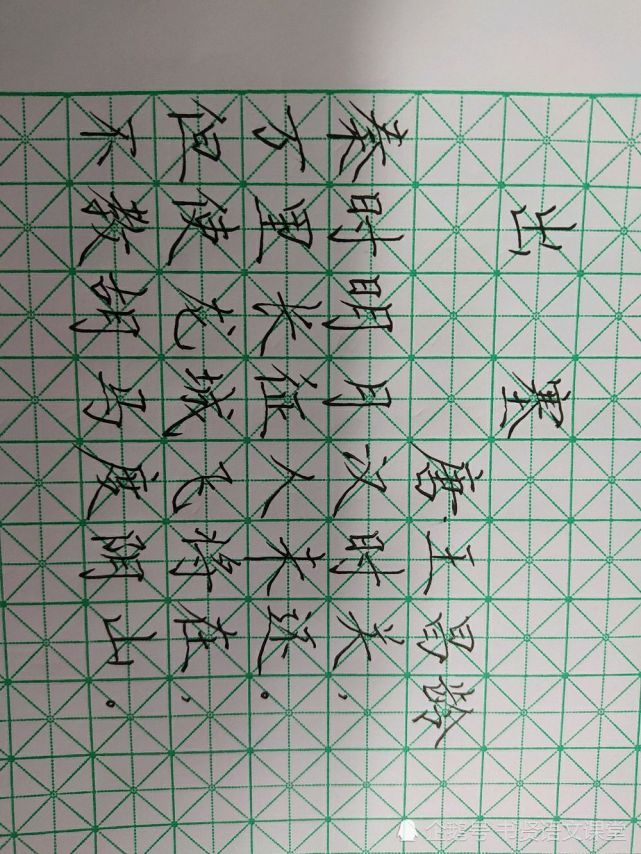 出塞
唐·王昌龄
秦时明月汉时关，
万里长征人未还。
但使龙城飞将在，
不教胡马度关山。
企鹅号 语文课堂